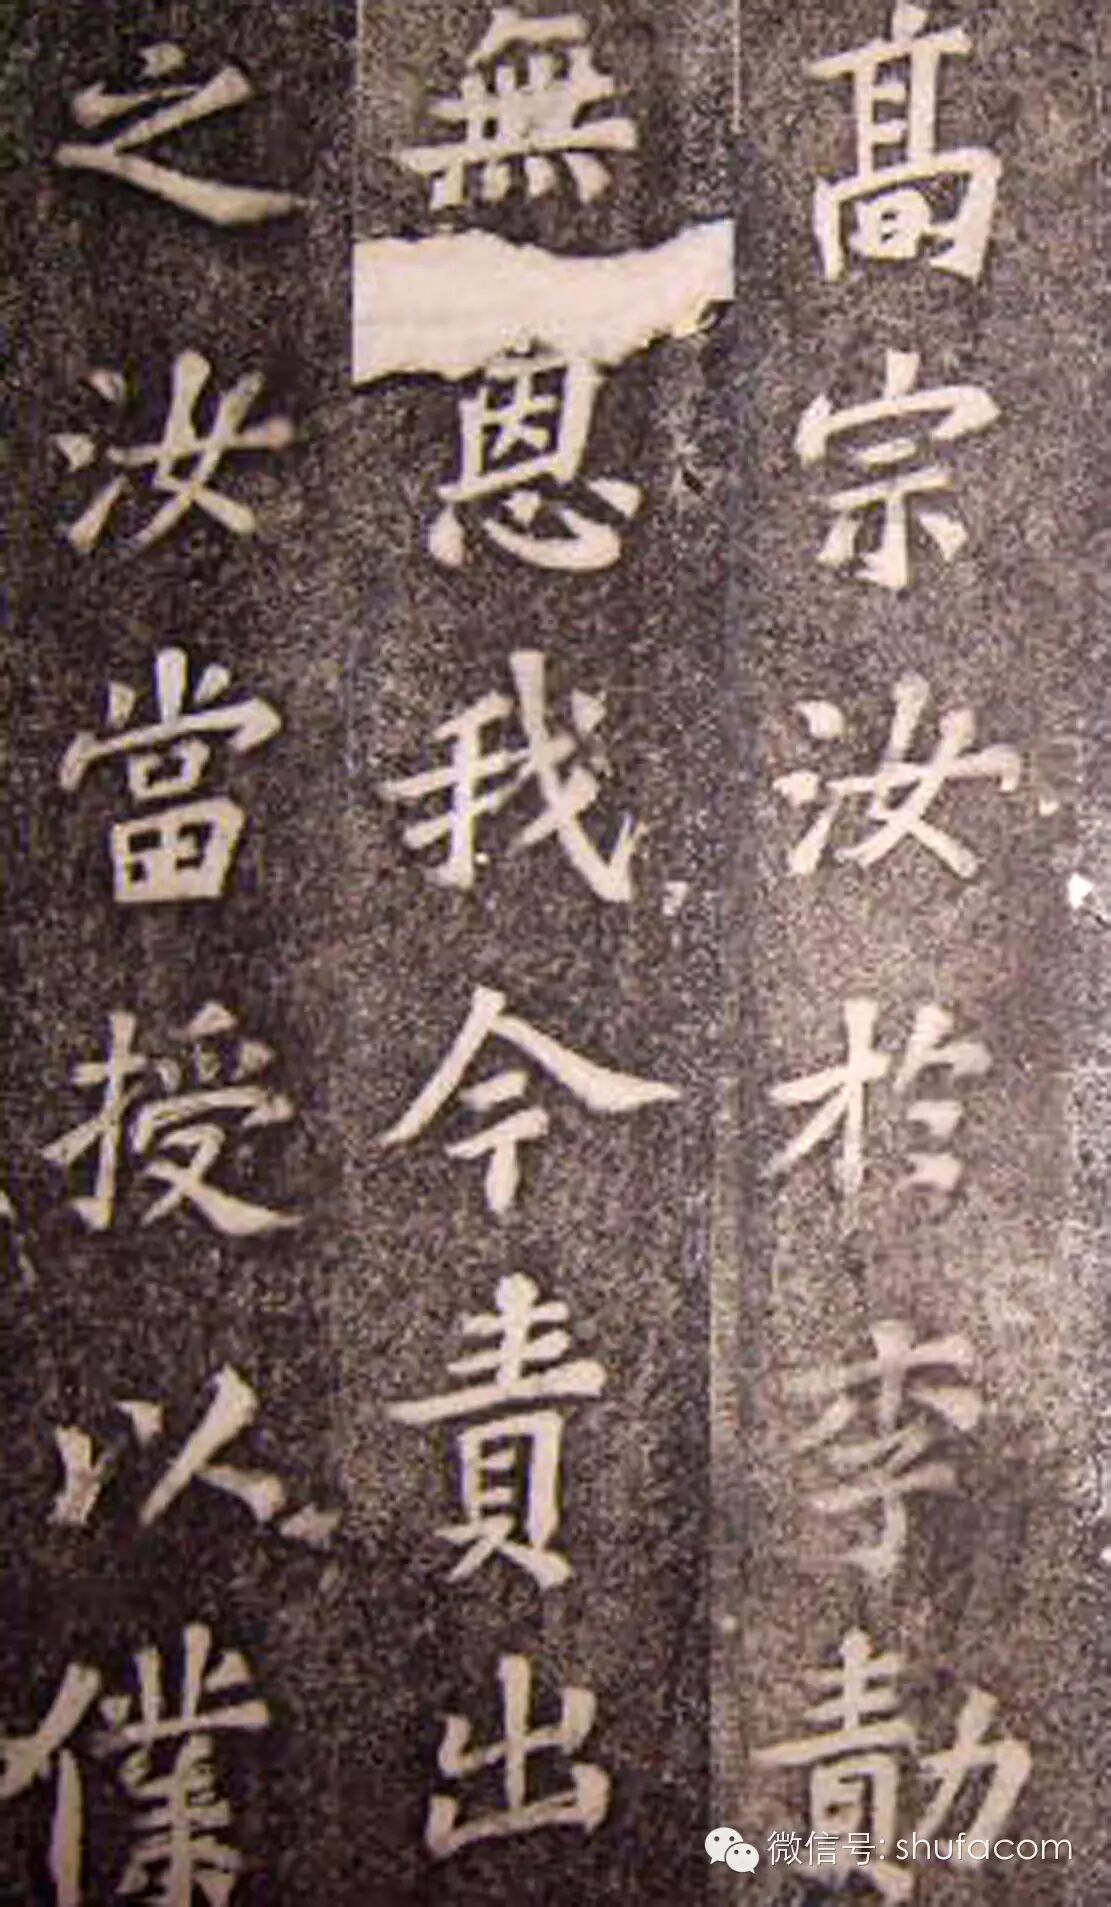 高宗汝於李勣
無恩我今責出
之汝當授以僕
微信号: shufacom